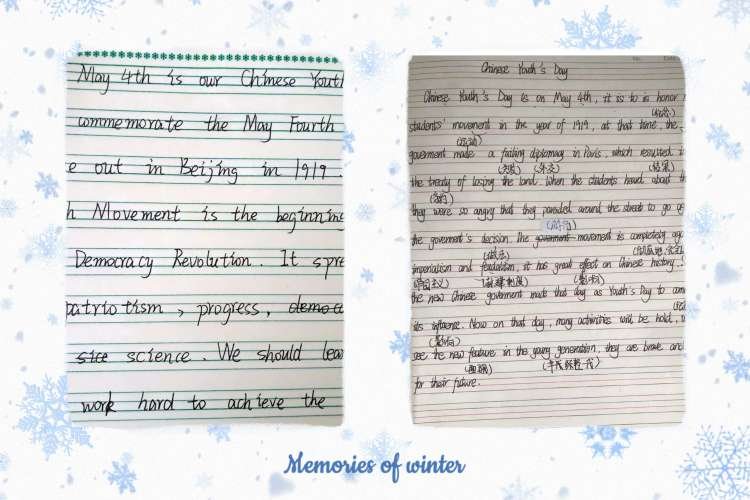 May 4th is our Chinese Youth
commemorate the May Fourth
e out in Beijing in 1919.
h Movement is the beginning
Democracy Revolution. It spre
patriotism, progress,
science. We should lear
work hard to achieve the
Chinese Youth's Day
Chinese Youth's Day is on May 4th, it is to in honor
students' movement in the year of 1919, at that time, the
(运动)
goverment made a failing diplomacy in Paris, which resulted i
(失败) (外交) (结果)
the treaty of losing the land. When the students heard about th
(条约)
they were so angry that they paraded around the street to go ag
(游行)
the goverment's decision. The goverment movement is completely aga
imperialism and feudalism, it has great effect on Chinese history.
(帝国主义) (影响)
the new Chinese goverment made that day as Youth's Day to com
its influence. Now on that day, many activities will be hold,
(影响)
see the new feature in the young generation, they are brave and
(年轻一代)
for their future.
Memories of winter